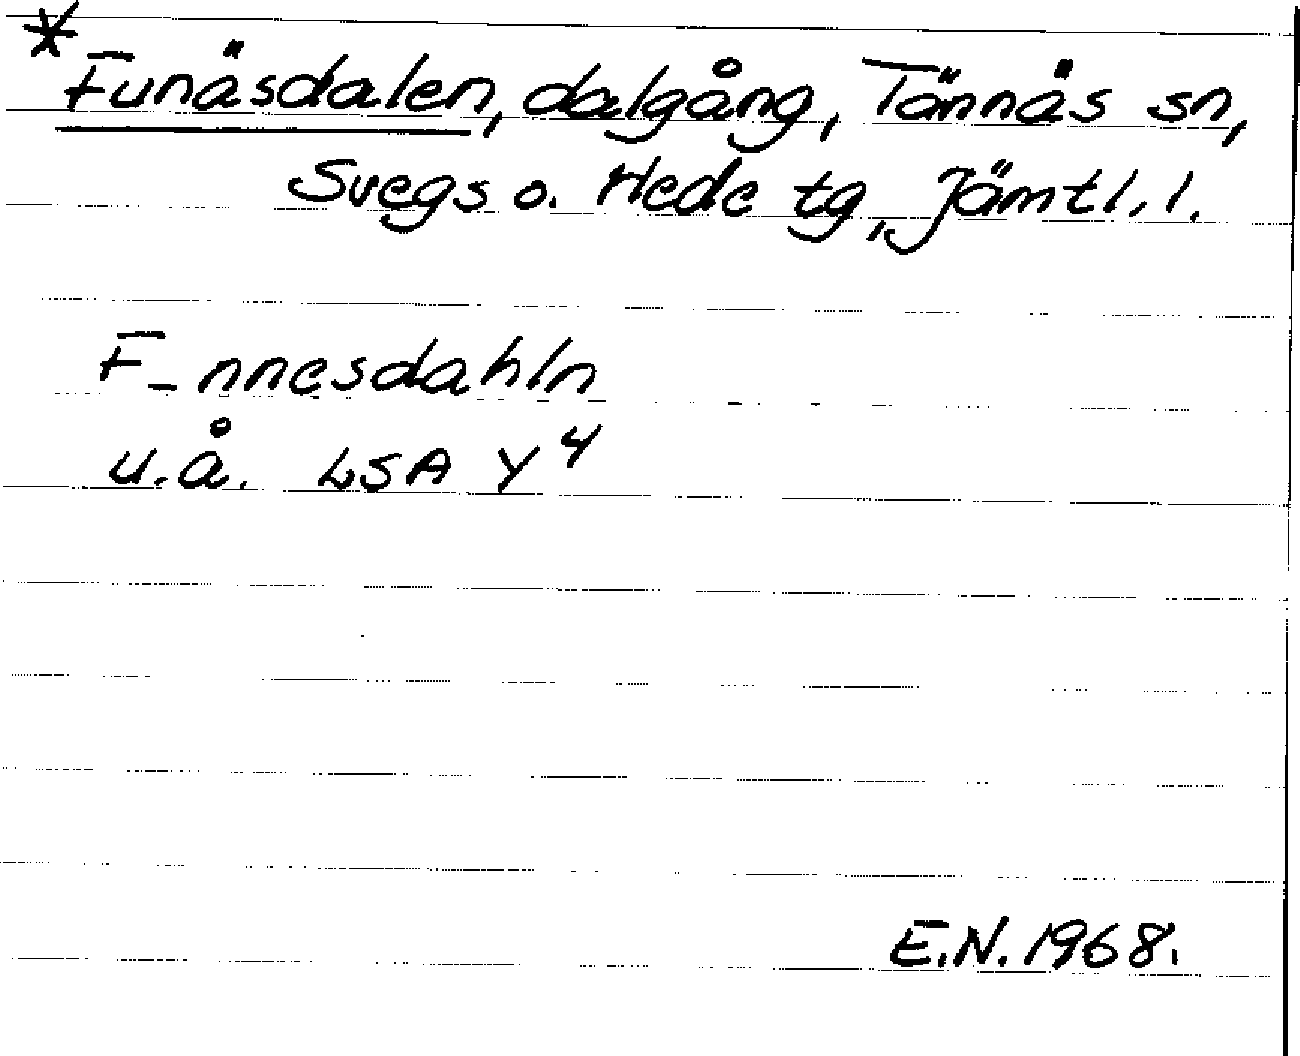 * Funäsdalen, dalgång, Tännäs sn,
Svegs o. Hede tg, Jämtl. l.
F_nnesdahln
u.å. LSA Y4
E.N. 1968.